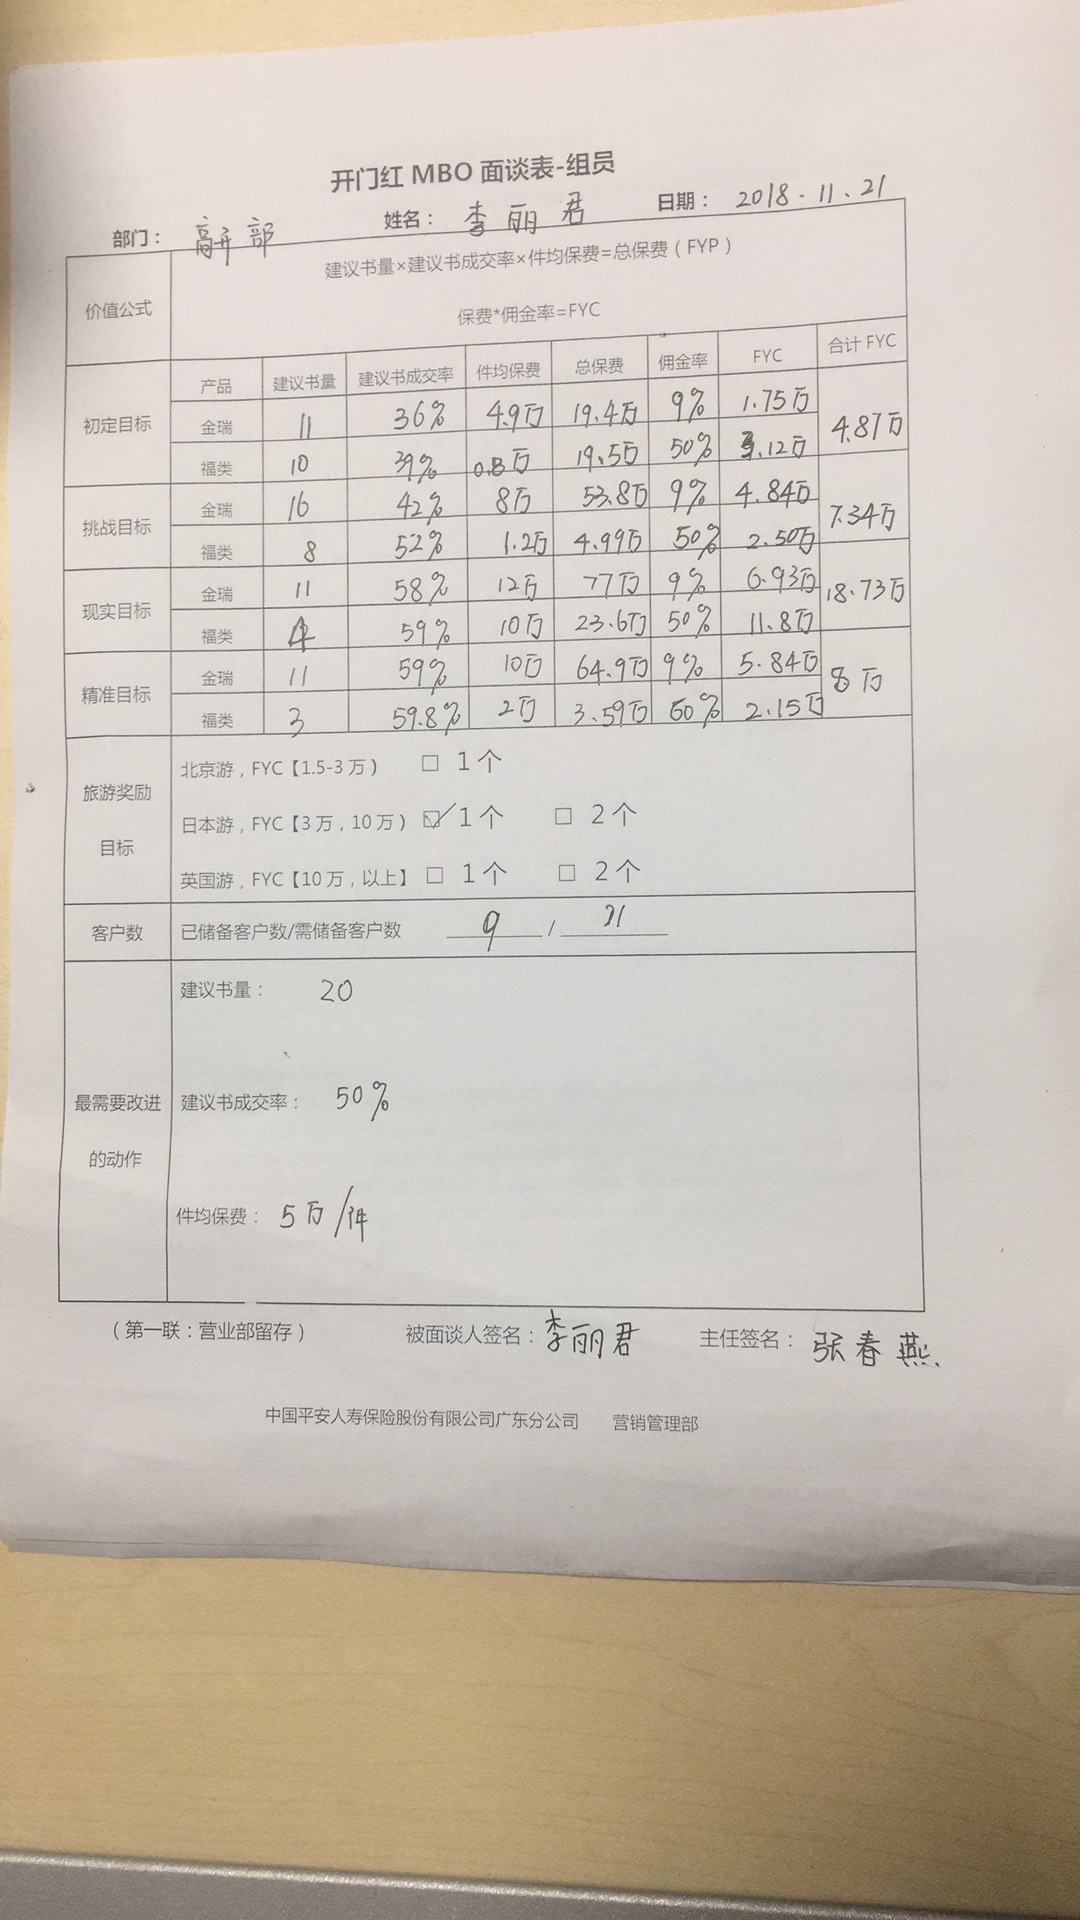 开门红 MBO 面谈表-组员
部门： 高开部 姓名： 李丽君 日期： 2018.11.21
价值公式
建议书量×建议书成交率×件均保费=总保费（FYP）
保费*佣金率=FYC
产品 建议书量 建议书成交率 件均保费 总保费 佣金率 FYC 合计 FYC
初定目标
金瑞 11 36% 4.9万 19.4万 9% 1.75万 4.87万
福类 10 39% 0.8万 19.5万 50% 3.12万
挑战目标
金瑞 16 42% 8万 53.8万 9% 4.84万 7.34万
福类 8 52% 1.2万 4.99万 50% 2.50万
现实目标
金瑞 11 58% 12万 77万 9% 6.93万 18.73万
福类 4 59% 10万 23.6万 50% 11.8万
精准目标
金瑞 11 59% 10万 64.9万 9% 5.84万 8万
福类 3 59.8% 2万 3.59万 60% 2.15万
旅游奖励
目标
北京游，FYC【1.5-3万） □ 1个
日本游，FYC【3万，10万） ☑ 1个 □ 2个
英国游，FYC【10万，以上】 □ 1个 □ 2个
客户数 已储备客户数/需储备客户数 9 / 21
最需要改进
的动作
建议书量： 20
建议书成交率： 50%
件均保费： 5万/件
（第一联：营业部留存） 被面谈人签名： 李丽君 主任签名： 张春燕
中国平安人寿保险股份有限公司广东分公司 营销管理部